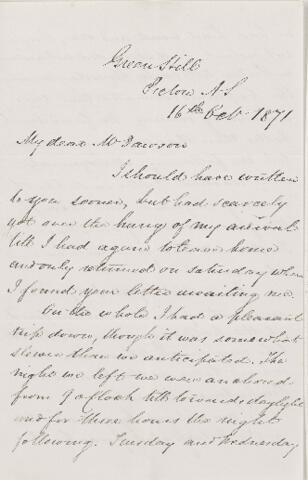 Green Hill
Pictou N.S
16th Oct. 1871
My dear Mr Dawson
I should have written
to you sooner, but had scarcely
got over the hurry of my arrival
till I had again to leave home
and only returned on Saturday when
I found your letter awaiting me.
On the whole I had a pleasant
trip down, though it was somewhat
slower than we anticipated. The
night we left we were anchored
from 9 o'clock till towards daylight
and for three hours the night
following. Tuesday and Wednesday